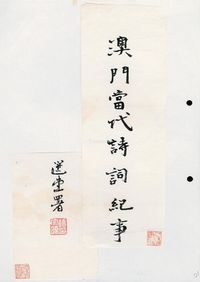 澳門當代詩詞紀事
選堂署